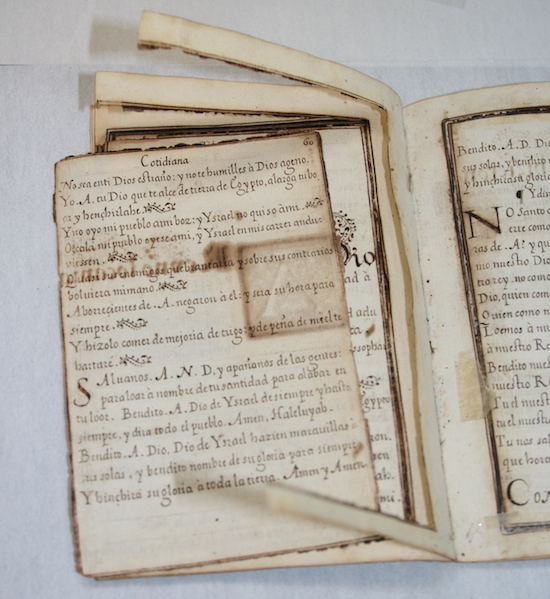 60
Cotidiana
No sea enti Dios estraño: y no te humilles à Dios ageno.
Yo A. tu Dio que te alce de tierra de Egypto, alarga tu bo
ca y henchirlahe.
Y no oyo mi pueblo ami boz: y Ysrael no quiso à mi.
Oxala mi pueblo oyese ami, y Ysrael en mis carrer andu
viessen.
sus enemigos quebrantaria y sobre sus contrarios
bolviera mi mano.
Aborrecientes de A. negaron à el: y sera su hora para
siempre.
Y hizolo comer de mejoria de trigo: y de peña de miel te
hartaré.
Saluanos. A. N. D. y apañanos de las gentes:
para loar à nombre de tu santidad para alabar en
tu loor. Bendito. A. Dio de Ysrael de siempre y hasta
siempre, y dira todo el pueblo. Amen, Haleluyah.
Bendito A. Dio, Dio de Ysrael hazien maravillas à
sus solas, y bendito nombre de su gloria para siempre
Y hinchirá su gloria à toda la tierra. Amen y Amen.
Dio
ad à
Egypto
mi.
Bendito. A. D. Di
sus solas, y benditо n
y hinchira su gloria
Y di
No santo
erre como
ras de A? y qu
mo nuestro Dio
tro rey. no como
Dio, quien com
Quien como n
Loemos à nu
à nuestro Re
Bendito nues
nuestro Re
Tu el nuest
tu el nuestr
Tu nos sal
que hora
Con